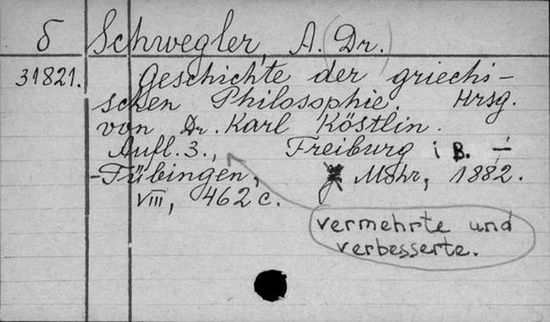 δ Schwegler, A. (Dr.)
31821. Geschichte der griechi-
schen Philosophie. Hrsg.
von Dr. Karl Köstlin.
Aufl. 3., Freiburg i B. ÷
-Tübingen, Mohr, 1882.
VIII, 462 c.
vermehrte und
verbesserte.